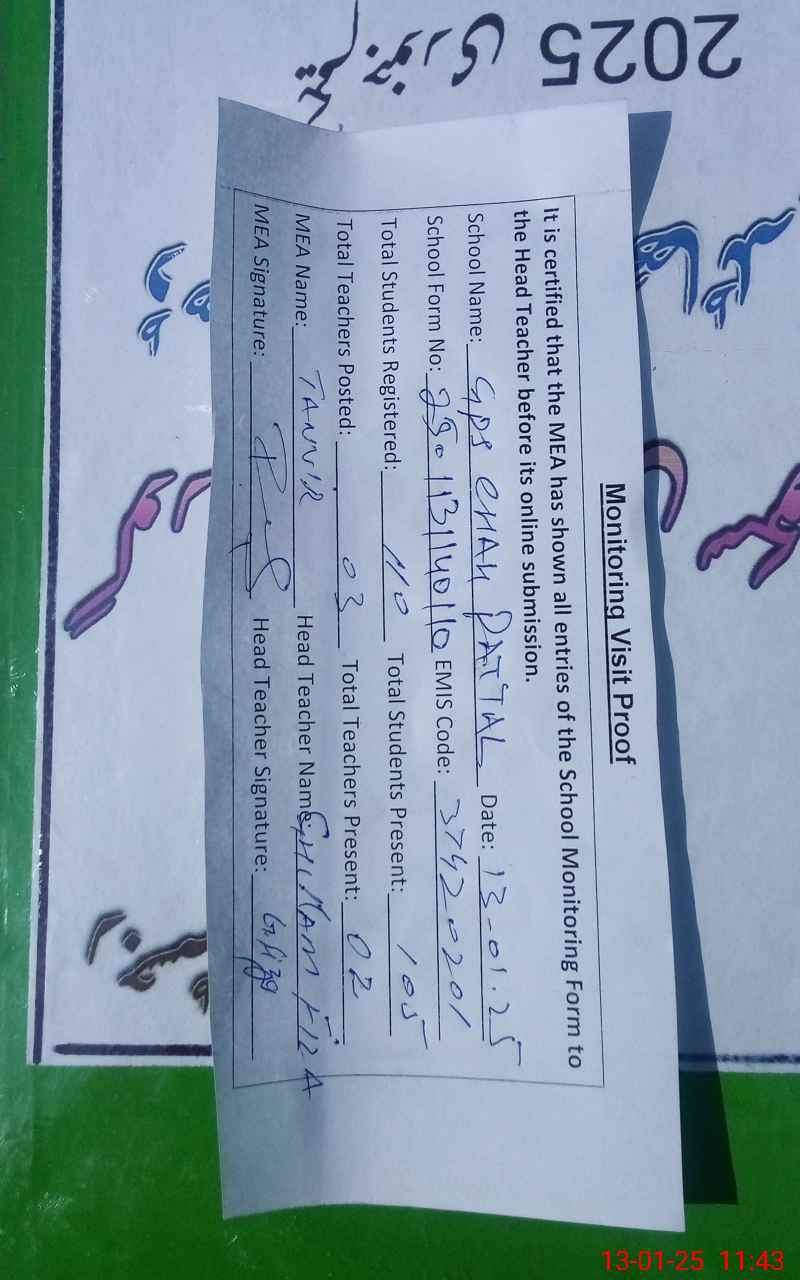 2025
جنوری
Monitoring Visit Proof
It is certified that the MEA has shown all entries of the School Monitoring Form to
the Head Teacher before its online submission.
School Name: GPS CHAH PATTAL Date: 13-01-25
School Form No: EMIS Code: 37420201
Total Students Registered: 110 Total Students Present: 105
Total Teachers Posted: 03 Total Teachers Present: 02
MEA Name: TANVIR Head Teacher Name: GHULAM
MEA Signature: Head Teacher Signature:
13-01-25 11:43